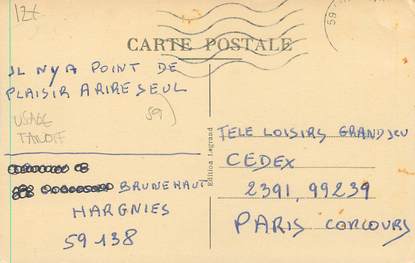 12t
59
CARTE POSTALE
IL NY A POINT DE
PLAISIR A RIRE SEUL
59
USAGE
TARDIF
Edition Legrand
TELE LOISIRS GRAND JEU
CEDEX
2391, 99239
PARIS CONCOURS
BRUNEHAUT
HARGNIES
59138